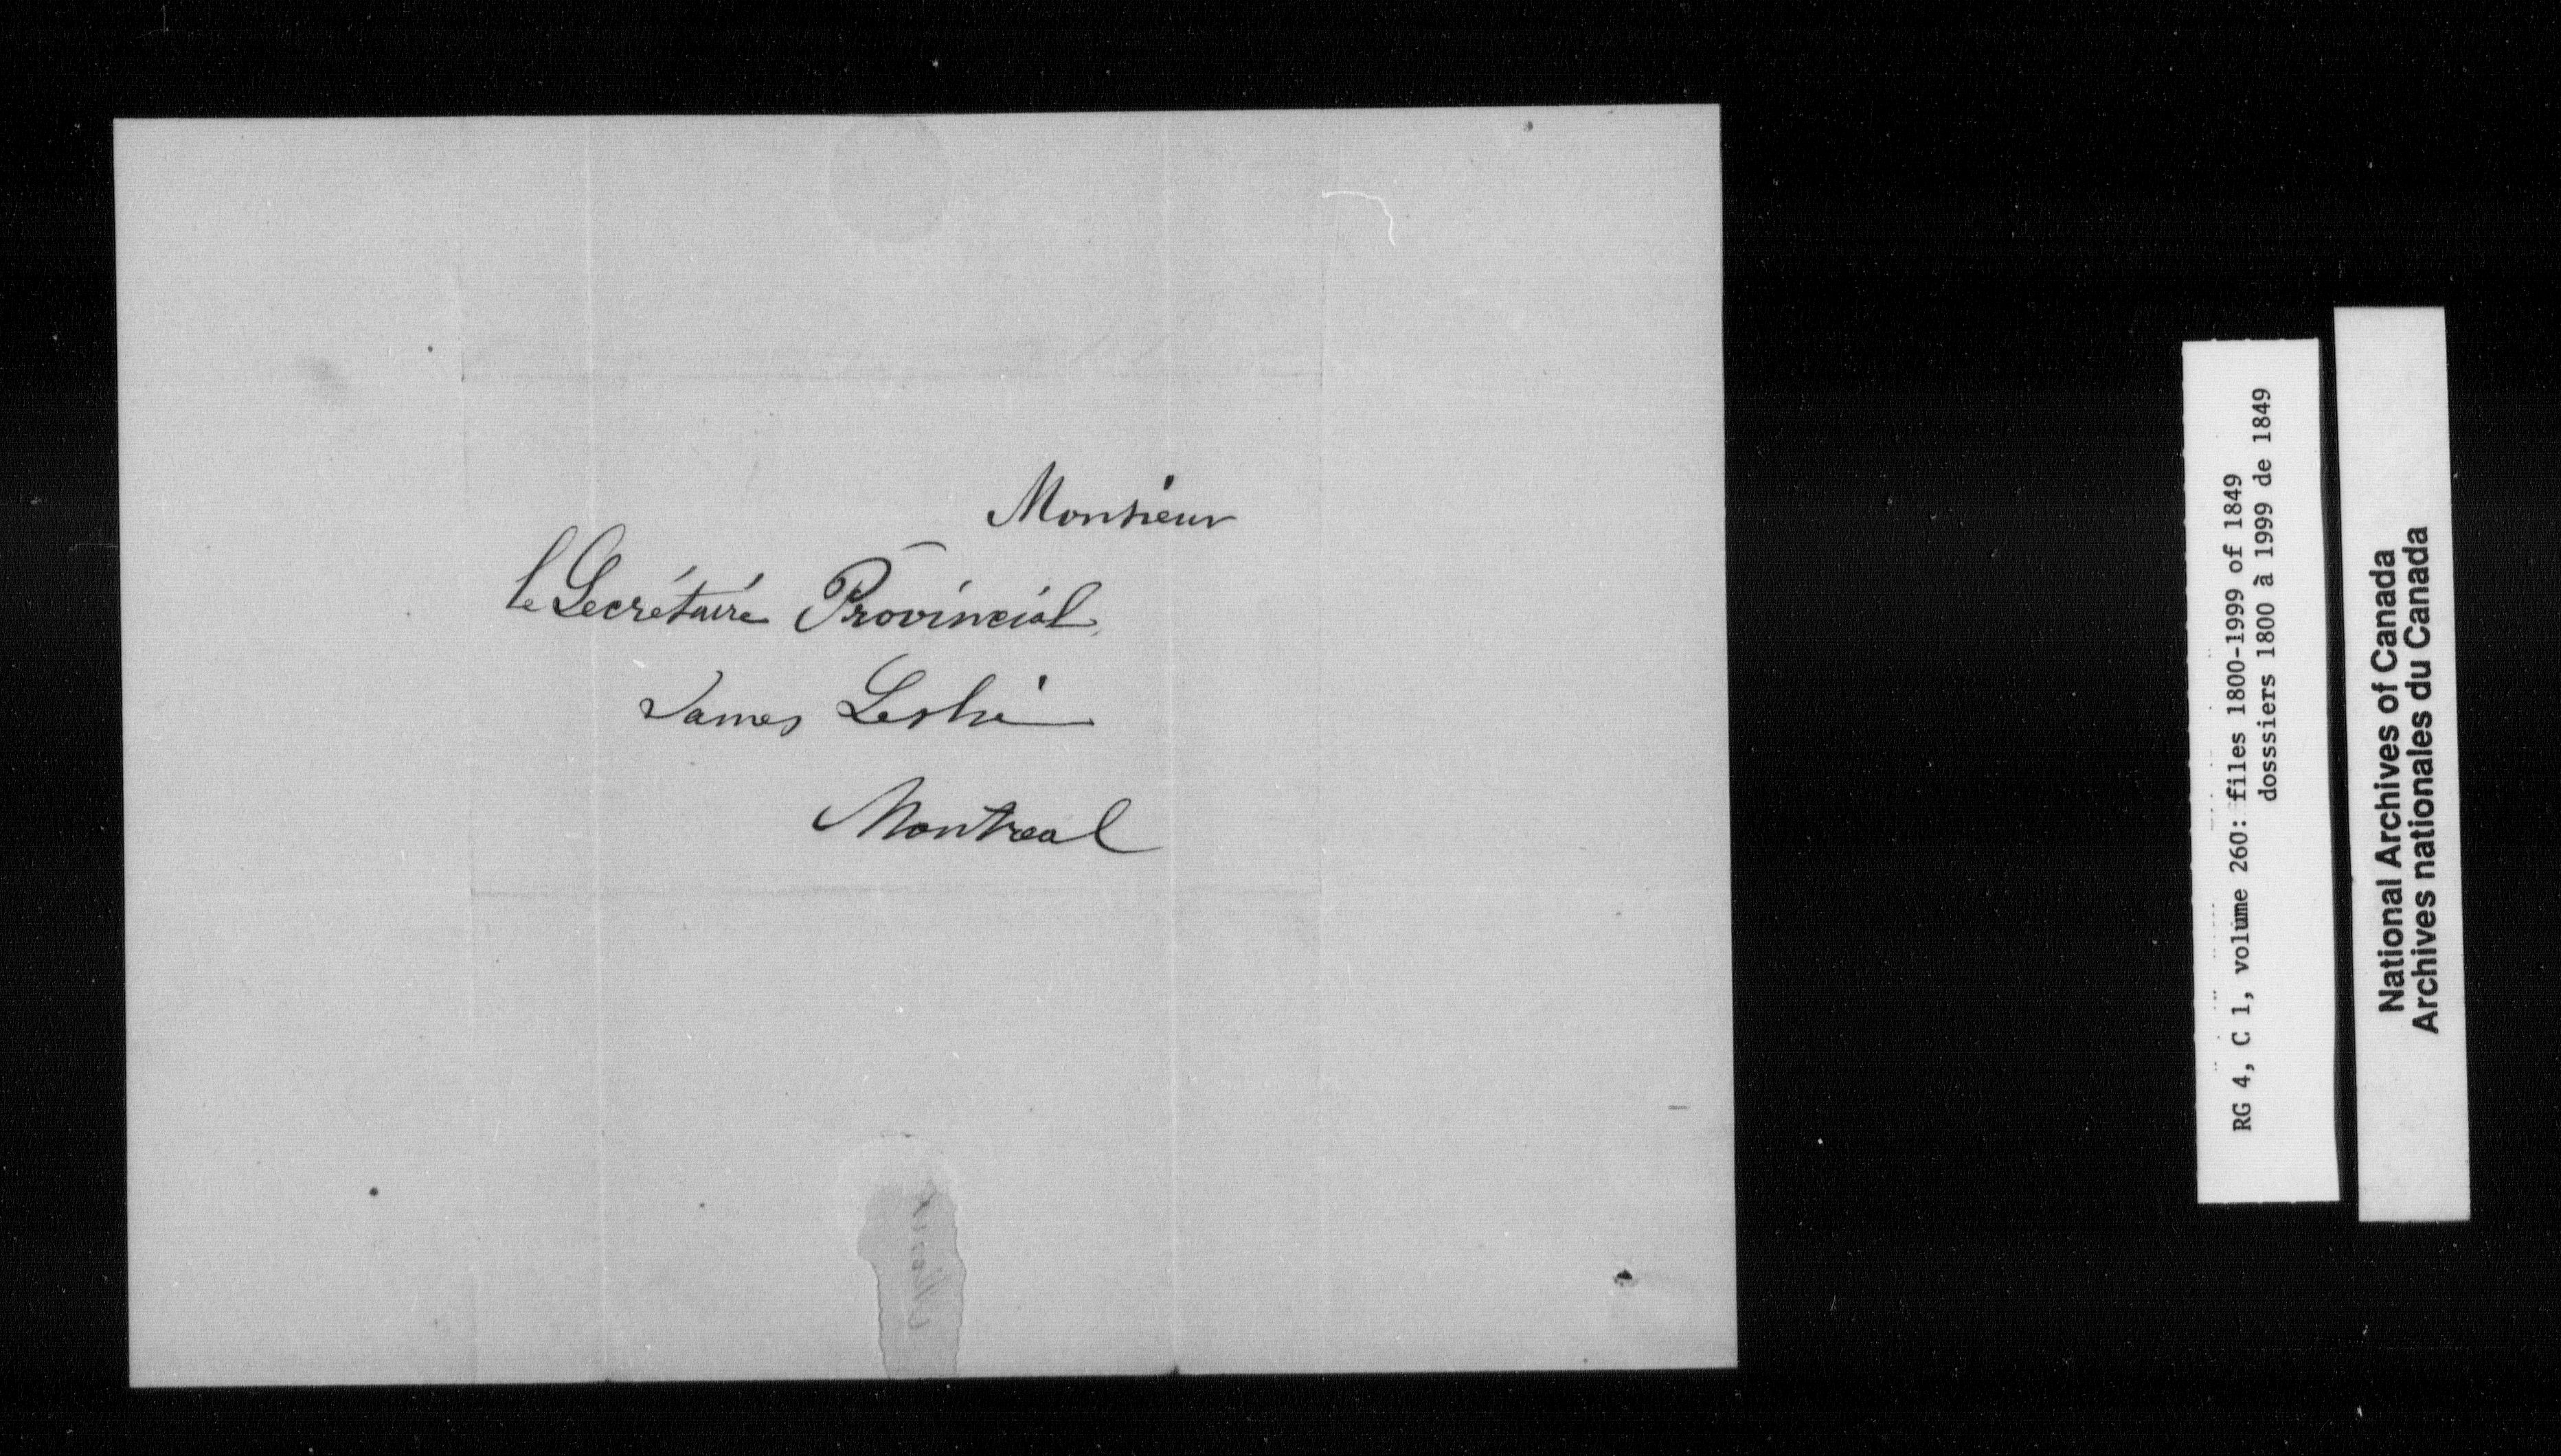 Monsieur
le Secrétaire Provincial,
James Leslie
Montreal
RG 4, C 1, volume 260: files 1800-1999 of 1849
dosssiers 1800 à 1999 de 1849
National Archives of Canada
Archives nationales du Canada